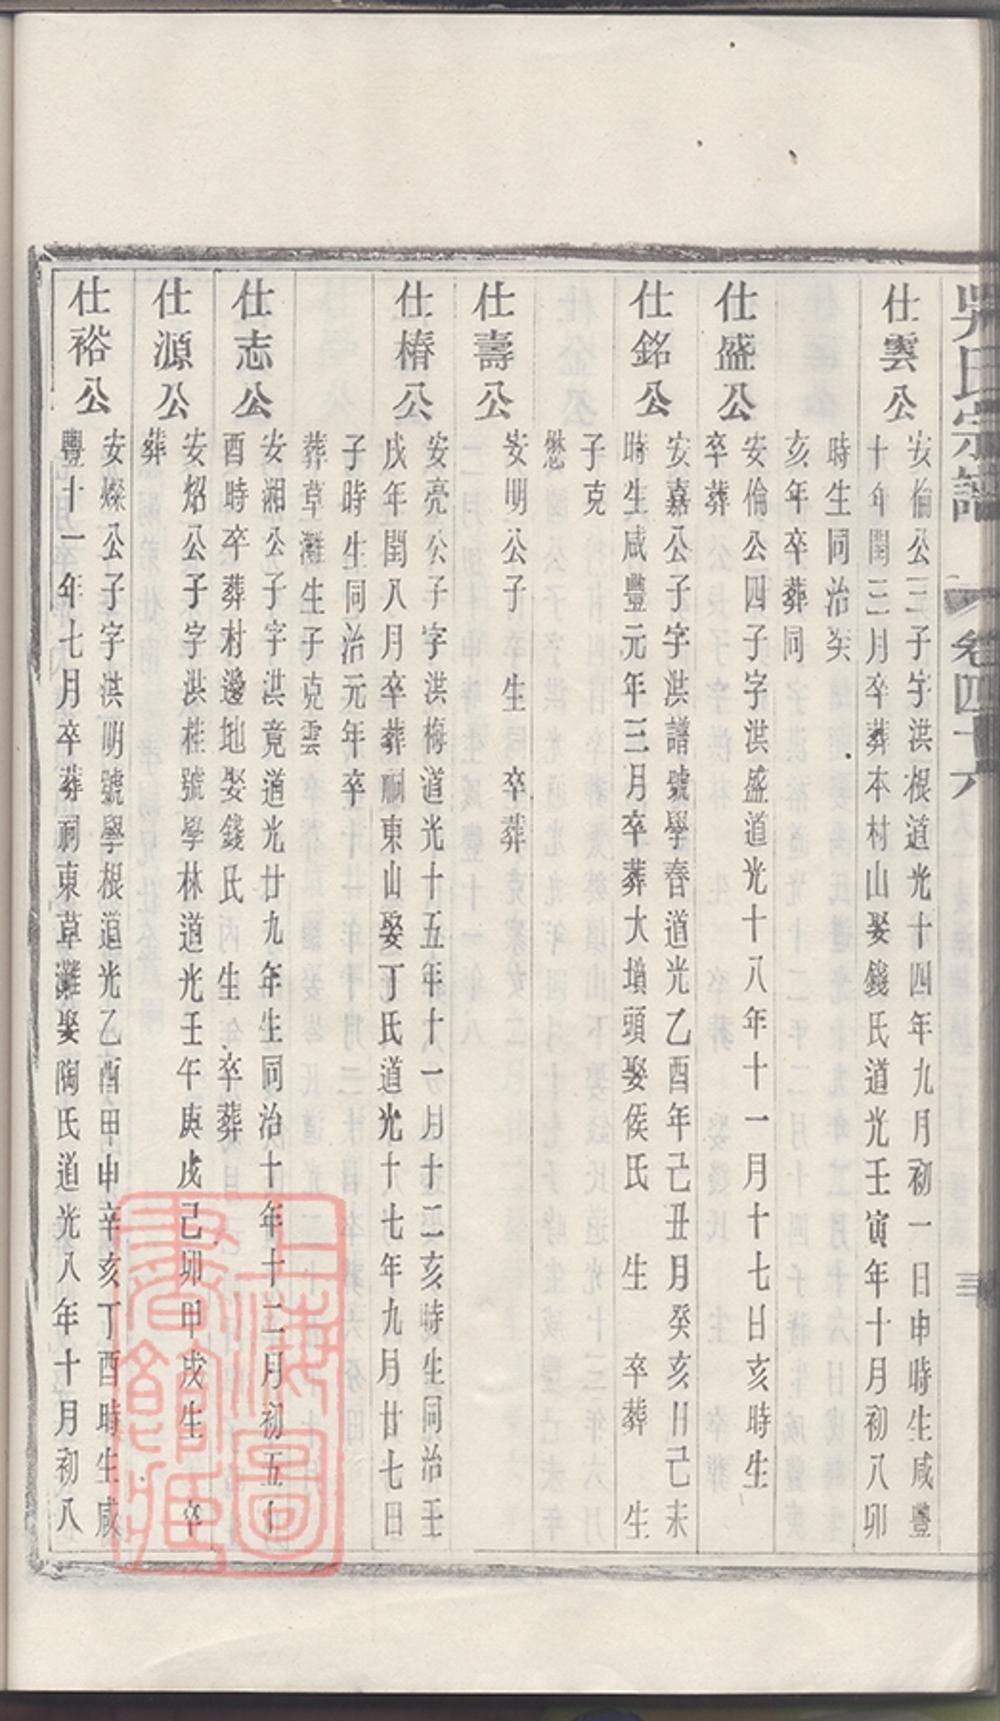 吳氏宗譜
卷四十六
仕雲公
安倫公三子字洪根道光十四年九月初一日申時生咸豐
十年閏三月卒葬本村山娶錢氏道光壬寅年十月初八卯
時生同治癸
亥年卒葬同
仕盛公
安倫公四子字洪盛道光十八年十一月十七日亥時生
卒葬
仕銘公
安嘉公子字洪譜號學春道光乙酉年己丑月癸亥日己未
時生咸豐元年三月卒葬大墳頭娶侯氏 生 卒葬 生
子克
懋
仕壽公
安明公子 生 卒葬
仕椿公
安亮公子字洪梅道光十五年十一月十二亥時生同治壬
戌年閏八月卒葬祠東山娶丁氏道光十七年九月廿七日
子時生同治元年卒
葬草灘生子克雲
仕志公
安湘公子字洪竟道光廿九年生同治十年十二月初五
酉時卒葬村邊地娶錢氏 生 卒葬
仕源公
安炤公子字洪桂號學林道光壬午庚戌己卯甲戌生 卒
葬
仕裕公
安燦公子字洪明號學根道光乙酉甲申辛亥丁酉時生咸
豐十一年七月卒葬祠東草灘娶陶氏道光八年十月初八
上海圖
書館藏